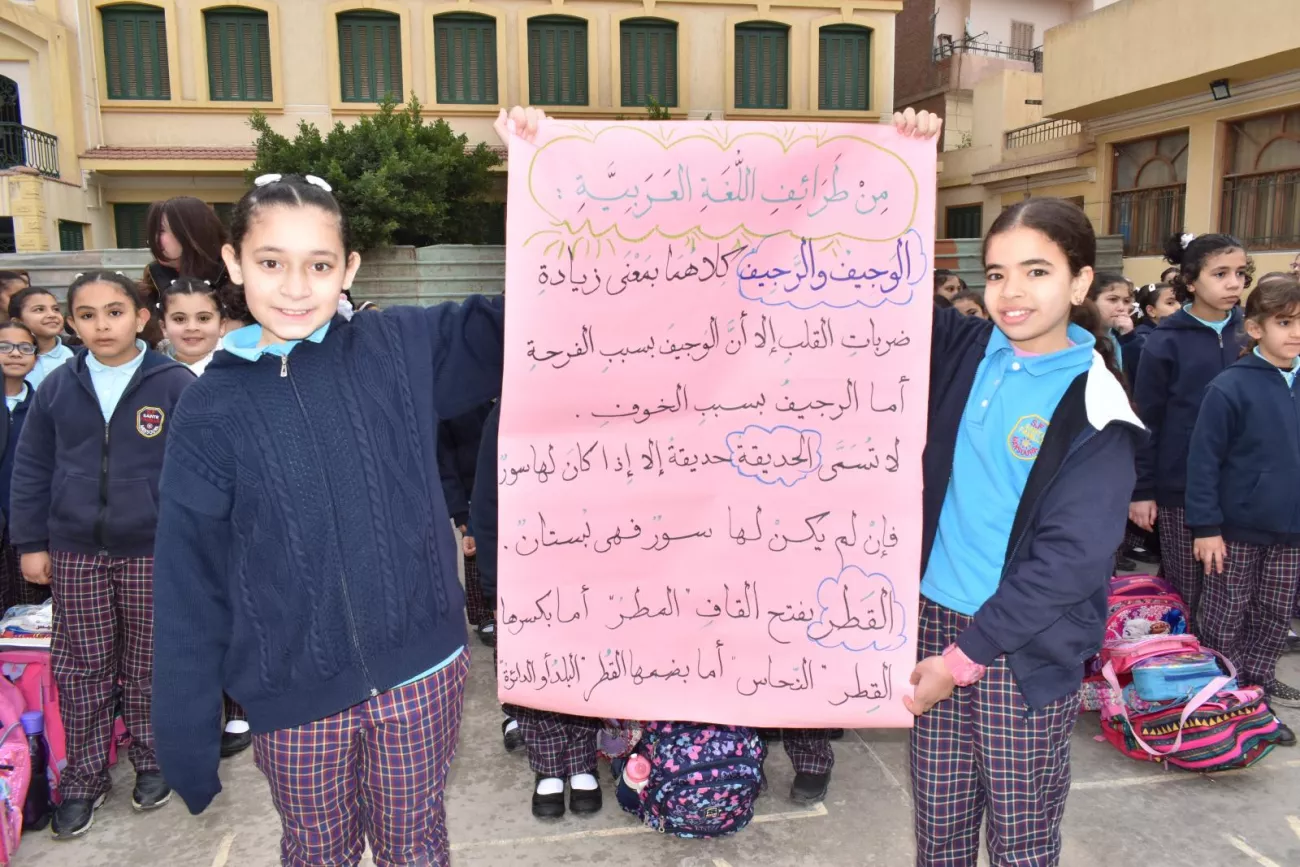 مِنْ طَرَائِفِ اللُّغَةِ العَرَبِيَّةِ :
الوَجيفُ والرَّجيفُ كلاهُمَا بمَعْنَى زيادةِ
ضرباتِ القلبِ إلا أنَّ الوَجيفَ بسببِ الفرحةِ
أما الرجيفُ بسببِ الخوفِ .
لا تُسَمَّى الحديقةُ حديقةً إلا إذا كانَ لها سورٌ
فإنْ لم يكنْ لها سورٌ فهي بُستانٌ .
القَطر بفتح القافِ "المطرُ" أما بكسرها
القِطر "النّحاس" أما بضمها القُطر "البلد أو الدائرة
SAINTE